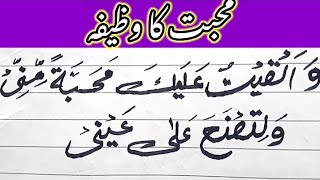 محبت کا وظیفہ
وَ اَلْقَیْتُ عَلَیْكَ مَحَبَّةً مِّنِّیْ
وَلِتُصْنَعَ عَلٰی عَیْنِیْ